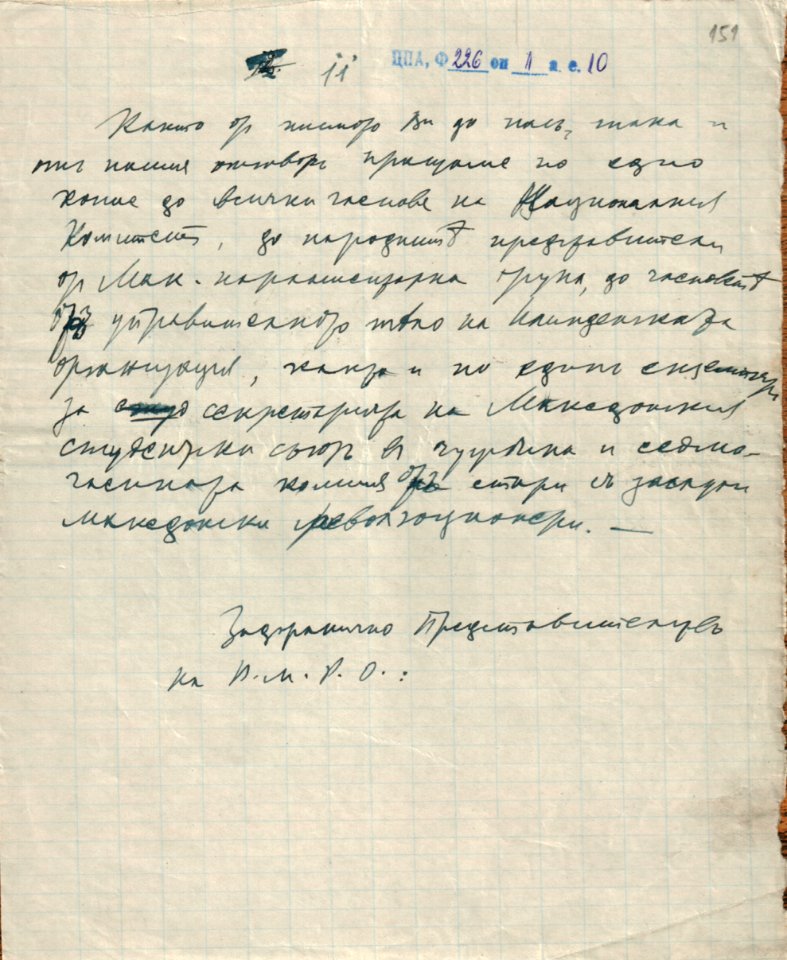 151
11
ЦПА, Ф 226 оп 1 а. е. 10
Както от писмото Ви до насъ, така и
отъ нашия отговоръ пращаме по едно
копие до всички членове на Националния
Комитетъ, до народнитѣ представители
от Мак. парламентарна група, до членоветѣ
отъ управителното тѣло на Илинденската
организация, както и по единъ екземпляръ
за секретарията на Македонския
студентски съюз в чужбина и седмо-
членната комисия отъ стари и заслужили
македонски революционери. —
Задгранично Представителство
на В. М. Р. О. :